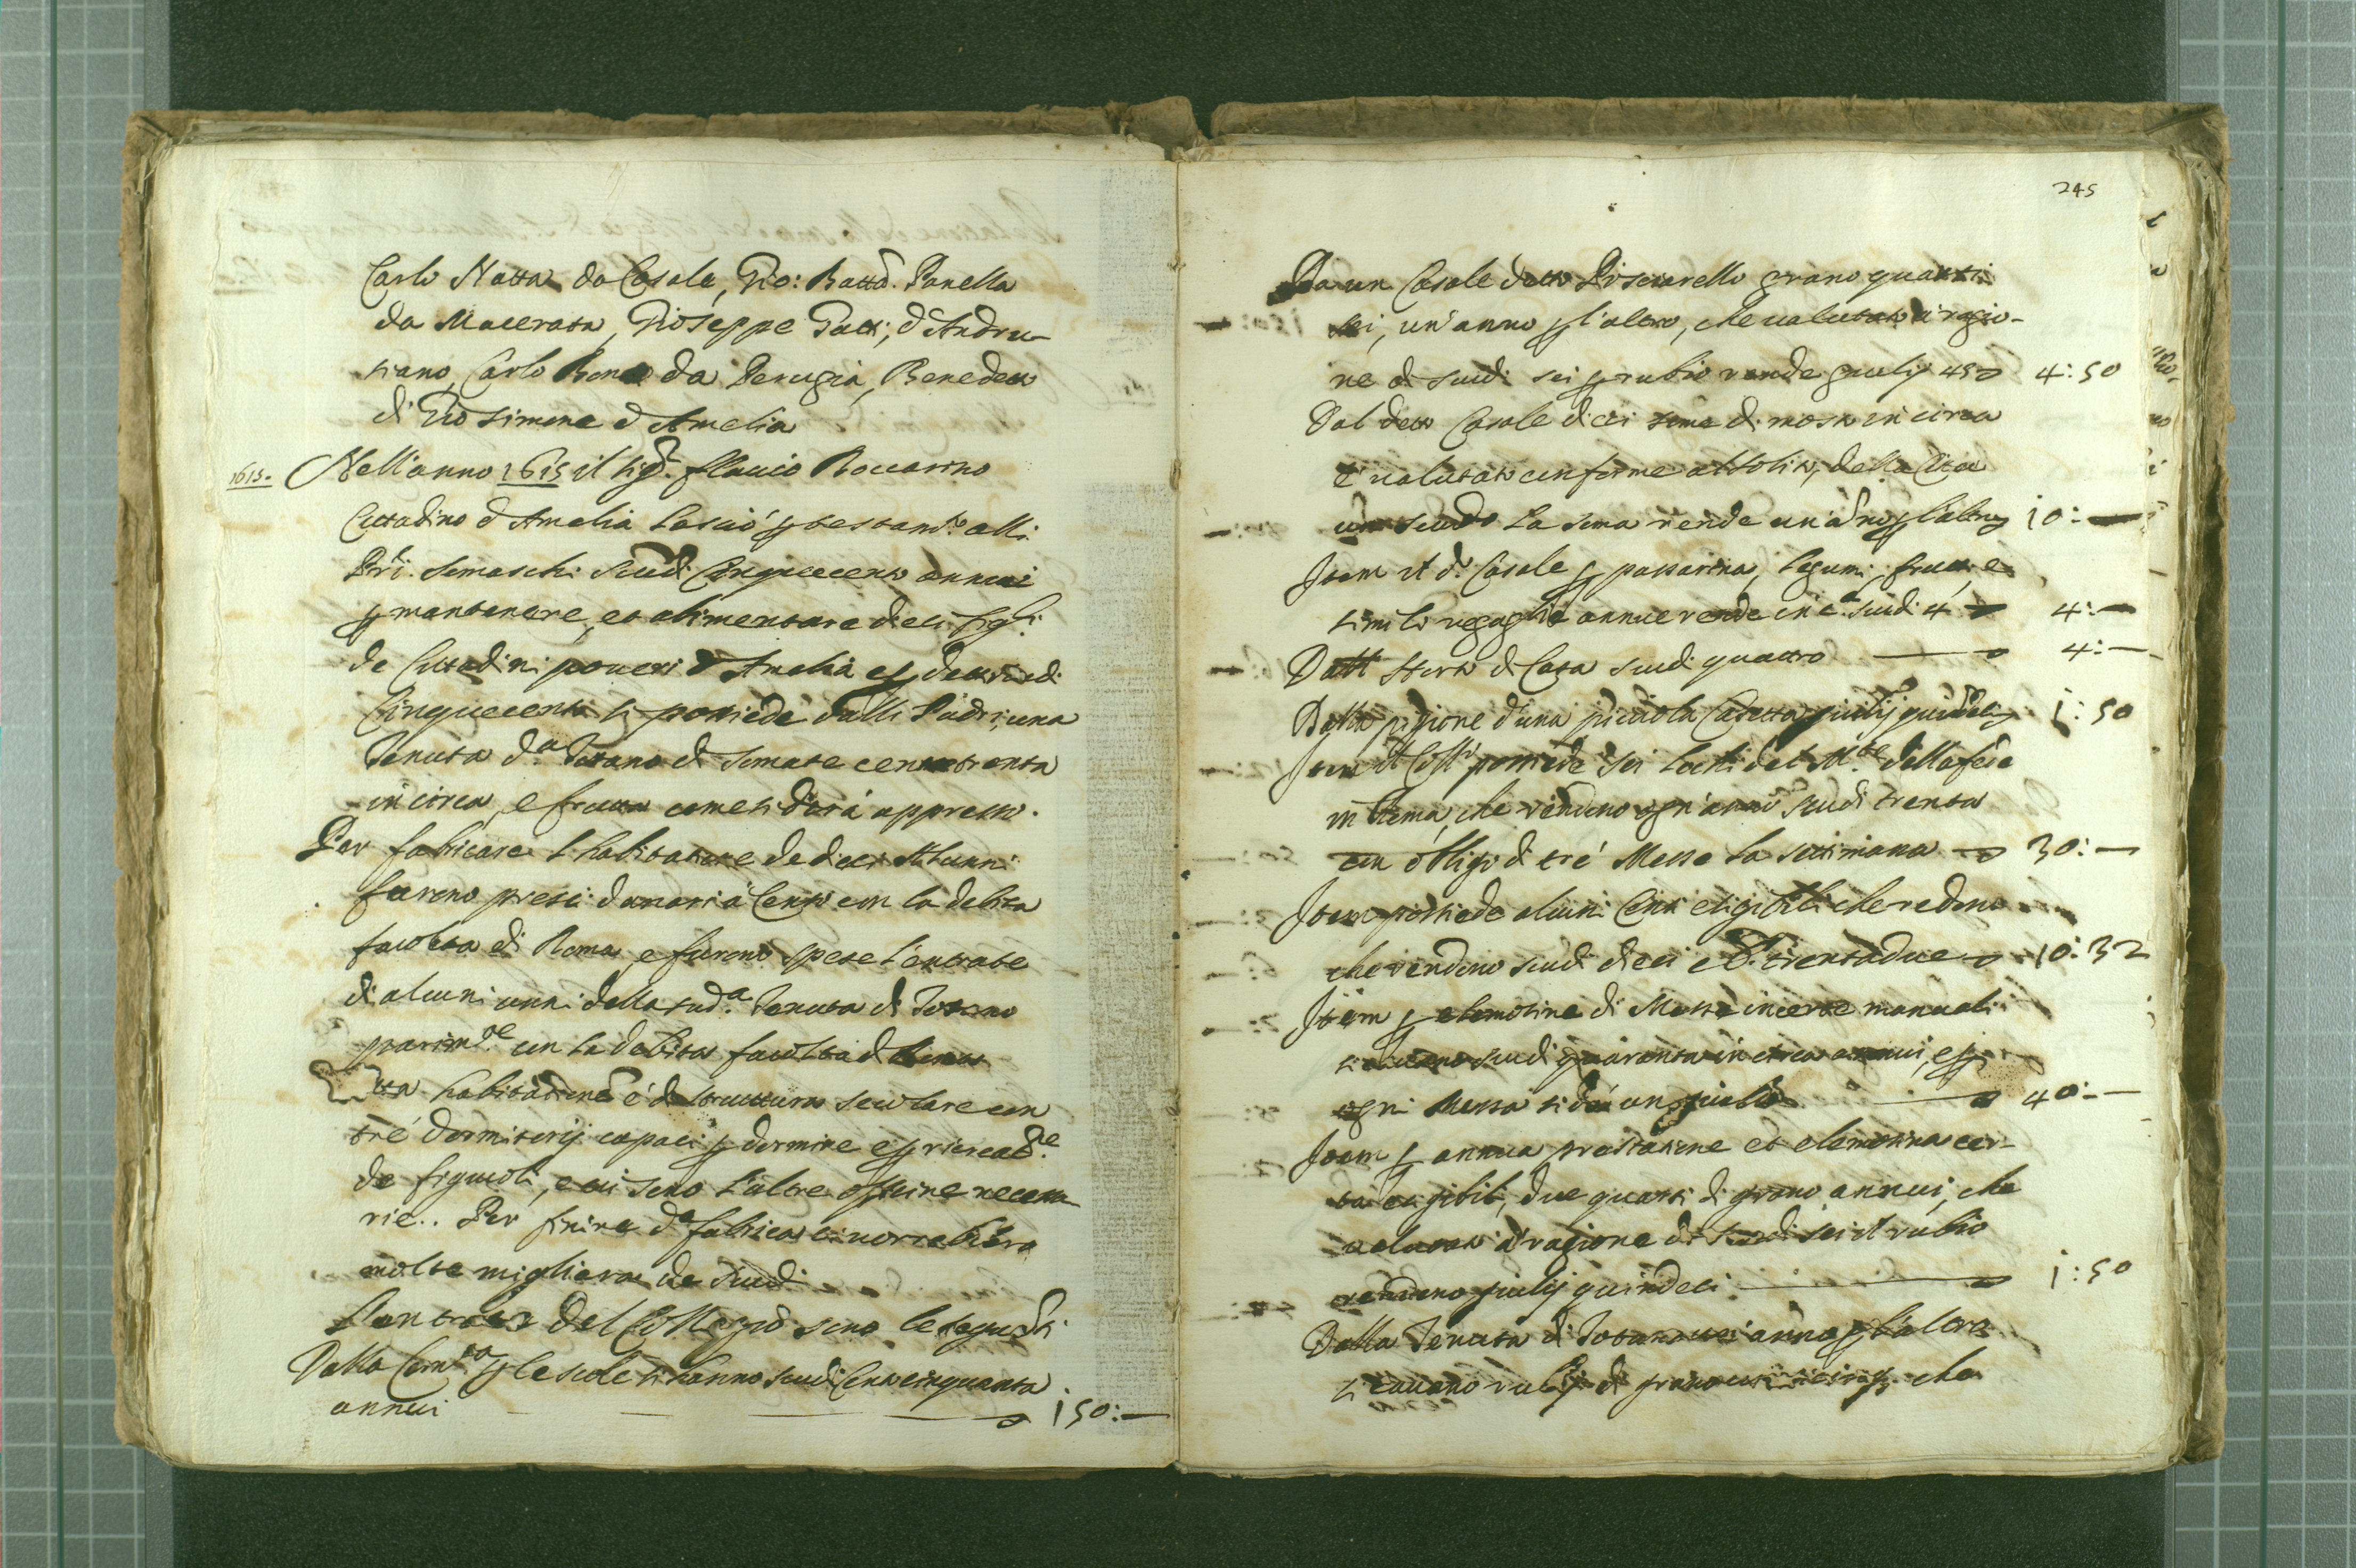 Carlo Natta da Casale, Gio: Batta. Panella
da Macerata, Gioseppe Gatti, d'Andru-
tiano, Carlo da Perugia, Benedetto
di Gio Simone d'Amelia
1615. Nell'anno 1615 il Sigr. Flavio Boccarino
Cittadino d'Amelia lasciò p testamto. alli
Pri. Somaschi scudi Cinquecento annui
p mantenere, et alimentare dieci figli.
de Cittadini poveri d'Amelia e p detti scudi
Cinquecento si possiede dalli Padri, una
Tenuta da. Totano di somate cento trenta
in circa, e frutta come si dirà appresso.
Per fabricare l'habitatione de dieci Alunni
furono presi danari à Censo con la debita
facoltà di Roma, e furono spese l'entrate
di alcuni anni della suda. Tenuta di Totano
parimte. con la debita facoltà di Roma
habitatione è di struttura secolare con
trè dormitorij capaci p dormire e p ricreatne.
de figliuoli, e vi sono l'altre officine necessa-
rie. Per finire da fabrica vi vorrebbero
molte migliara de scudi
L'entrate del Collegio sono le seguenti
Dalla Comtà p le scole si hanno scudi Cento cinquanta
annui 150:—
245
Da un Casale detto Pisciarello grano quarti
sei, un'anno p l'altro, che valutato à ragio-
ne di scudi sei p rubio rende giulij 45 4:50
Dal detto Casale dieci some di mosto in circa
e valutato conforme al solito, della Città
uno scudo la soma rende un'anno p l'altro 10:—
Item il do. Casale p passarina, legumi, frutti, e
simili regaglie annue rende in ca. scudi 4 4:—
Dall' Horto di Casa scudi quattro 4:—
Dalla pigione d'una picciola Casetta giulij quindeci 1:50
Item il Colleo. possiede sei lochi del Mte. della fede
in Roma, che rendono ogn'anno scudi trenta
con obligo di trè Messe la settimana 30:—
Item possiede alcuni Censi esigibili che redono
che rendono scudi dieci e b. trentadue 10:32
Item p elemosine di Messe incerte manuali
si cavano scudi quaranta in circa annui, e p
ogni Messa si dà un giulio 40:—
Item p annua prestatione et elemosina cer-
ta esigibile, due quarti di grano annui, che
valutati à ragione di scudi sei il rubio
rendono giulij quindeci 1:50
Dalla Tenuta di Totano un'anno p l'altro
si cavano rubij di grano che